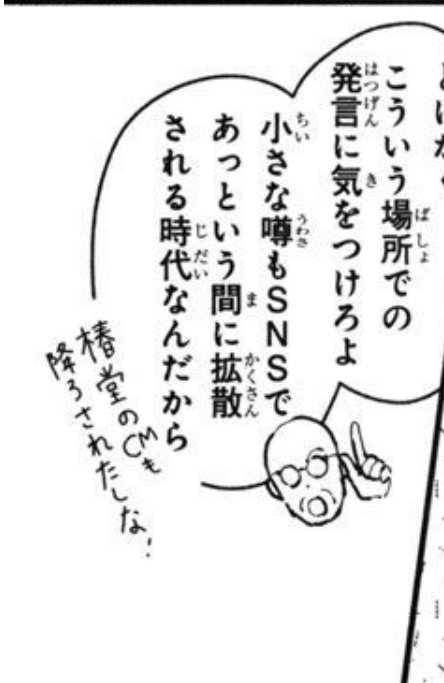 こういう場所での
発言に気をつけろよ
小さな噂もSNSで
あっという間に拡散
される時代なんだから
椿堂のCMも
降ろされたしな!